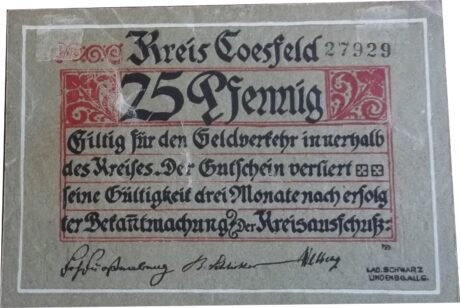 Kreis Coesfeld 27929
25 Pfennig
Giltig für den Geldverkehr innerhalb
des Kreises. Der Gutschein verliert
seine Gültigkeit drei Monate nach erfolg
ter Bekan̄tmachung. Der Kreisausschuß:
LAD. SCHWARZ
LINDENBG. ALLG.